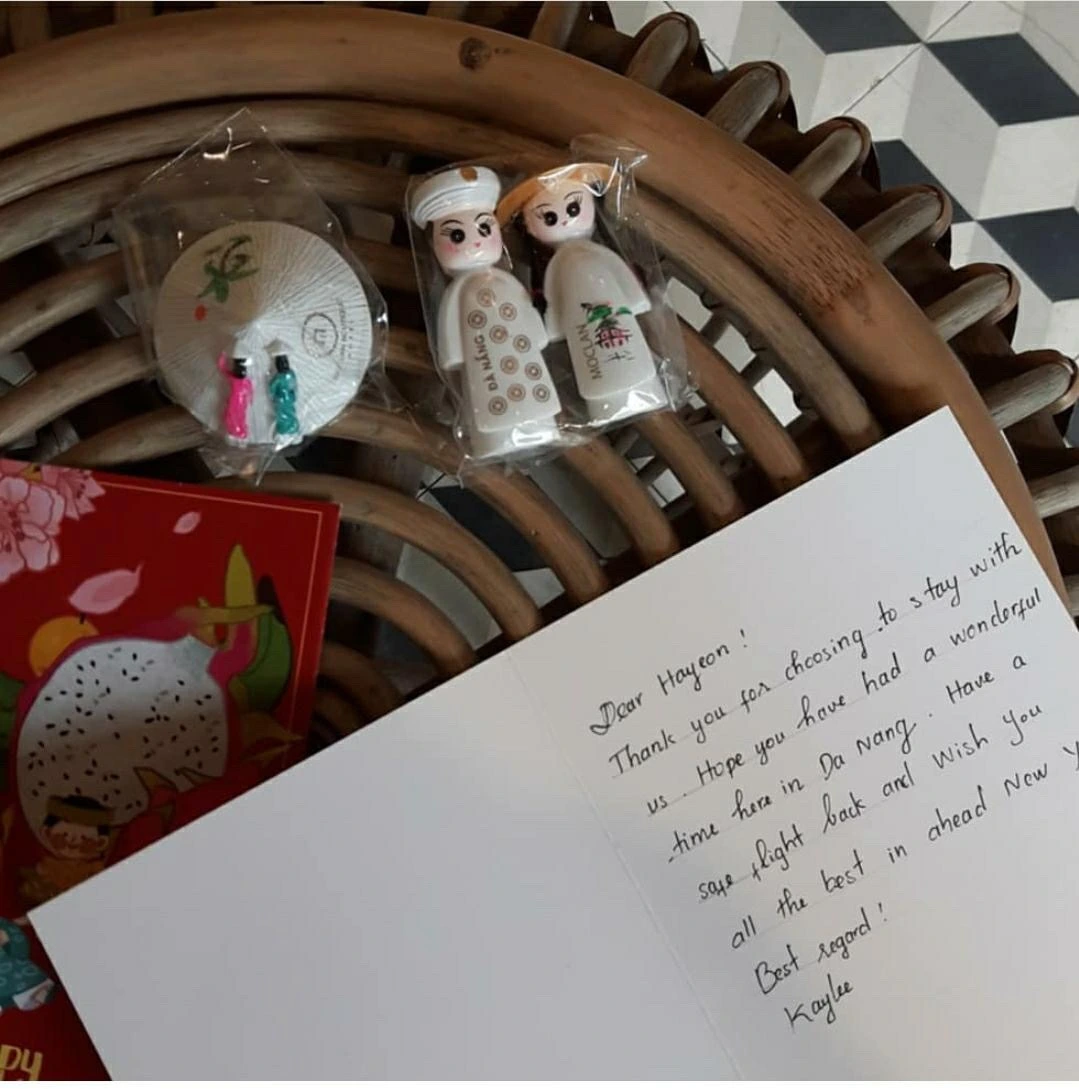 DA NANG
MOCLAN
Dear Hayeon !
Thank you for choosing to stay with
us . Hope you have had a wonderful
time here in Da Nang . Have a
safe flight back and Wish you
all the best in ahead New Y
Best regard !
Kaylee
PY